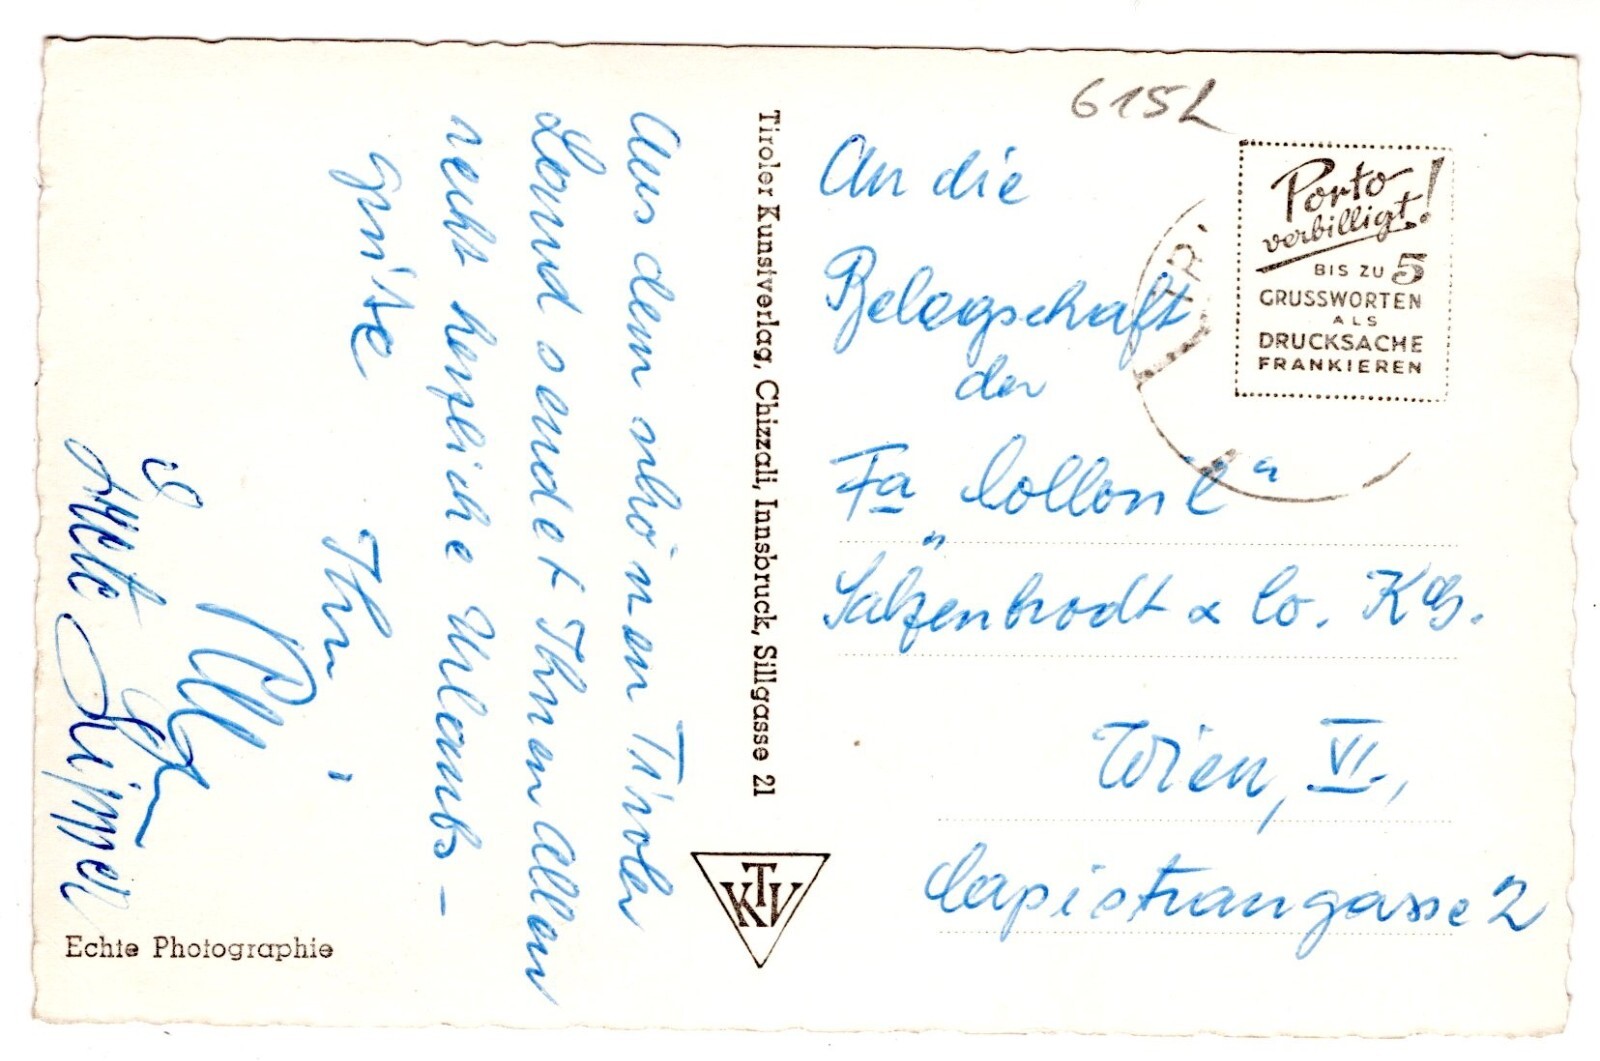 Aus dem schönen Tiroler
Land sendet Ihnen allen
recht herzliche Urlaubs-
grüße
Ihr
Echte Photographie
Tiroler Kunstverlag, Chizzali, Innsbruck, Sillgasse 21
KTV
An die
Belegschaft
der
Fa „Collonil“
Salzenbrodt & Co. KG.
Wien, VI.,
Capistrangasse 2
Porto
verbilligt!
BIS ZU 5
GRUSSWORTEN
ALS
DRUCKSACHE
FRANKIEREN